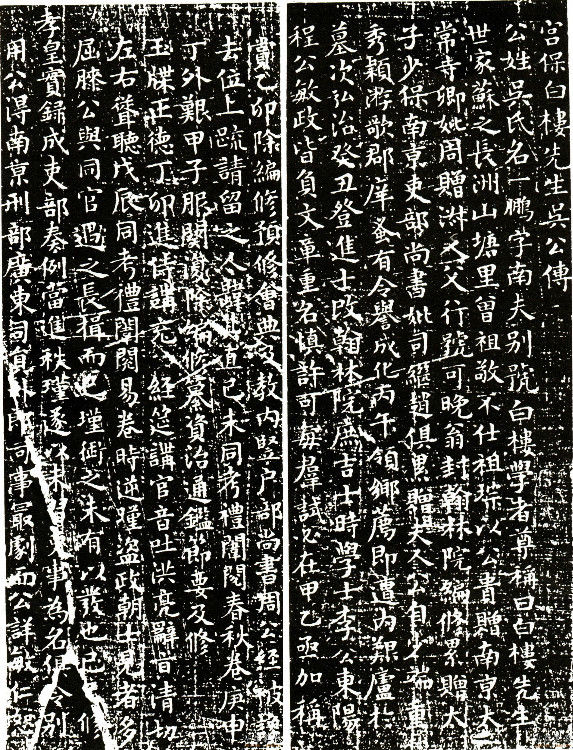 宫保白樓先生吳公傳
公姓吳氏名一鵬字南夫別號白樓學者尊稱曰白樓先生
世家蘇之長洲山塘里曾祖敬不仕祖琮以公貴贈南京太
常寺卿妣周贈淑人父行號可晚翁封翰林院編修累贈太
子少保南京吏部尚書妣司繼趙俱累贈夫人公自少端重
秀穎游歌郡庠蚤有令譽成化丙午領鄉薦即遭內艱廬於
墓次弘治癸丑登進士改翰林院庶吉士時學士李公東陽
程公敏政皆負文章重名慎許可每羣試必在甲乙亟加稱
賞乙卯除編修預修會典及教內竪戶部尚書周公經被讒
去位上疏請留之人韙其直己未同考禮闈閱春秋卷庚申
丁外艱甲子服闋復除編修纂資治通鑑節要及修
玉牒正德丁卯進侍講充 經筵講官音吐洪亮辭旨清切
左右聳聽戊辰同考禮闈閱易卷時逆瑾盜政朝士見者多
屈膝公與同官遇之長揖而已瑾銜之未有以發也己巳修
孝皇實錄成吏部奏例當進秩瑾遂以未習吏事為名俱令別
用公得南京刑部廣東司員外郎司事最劇而公詳敏仁恕